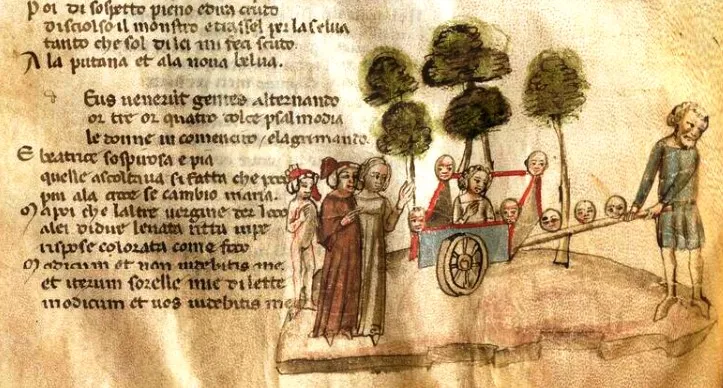 Poi di sospetto pieno et dira crudo
disciolso il monstro e trassel per la selua
tanto che sol di lei mi feci scuto
A la putana et ala noua belua.
Eus uenerūt gentes alternando
or tre or quatro dolce psalmodia
le donne in comenciro / e lagrimando.
E beatrice sospirosa e pia
quelle ascoltaua si fatta che poco
piu ala croce se cambio maria.
M a poi che laltre uergine der loco
a lei di dire leuata ritta in pe
rispose colorata come foco
M odicum et non uidebitis me.
et iterum sorelle mie dilette
modicum et uos uidebitis me